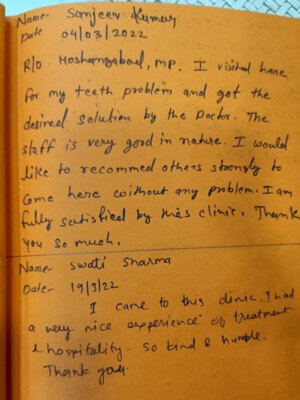 Name- Sanjeev Kumar
Date 04/03/2022
R/O Hoshangabad, MP. I visited here
for my teeth problem and got the
desired solution by the Doctor. The
staff is very good in nature. I would
like to recommed others strongly to
come here without any problem. I am
fully satisfied by this clinic. Thank
you so much.
Name- Swati Sharma
Date- 19/3/22
I came to this clinic. I had
a very nice experience of treatment
& hospitality. So kind & humble.
Thank you.